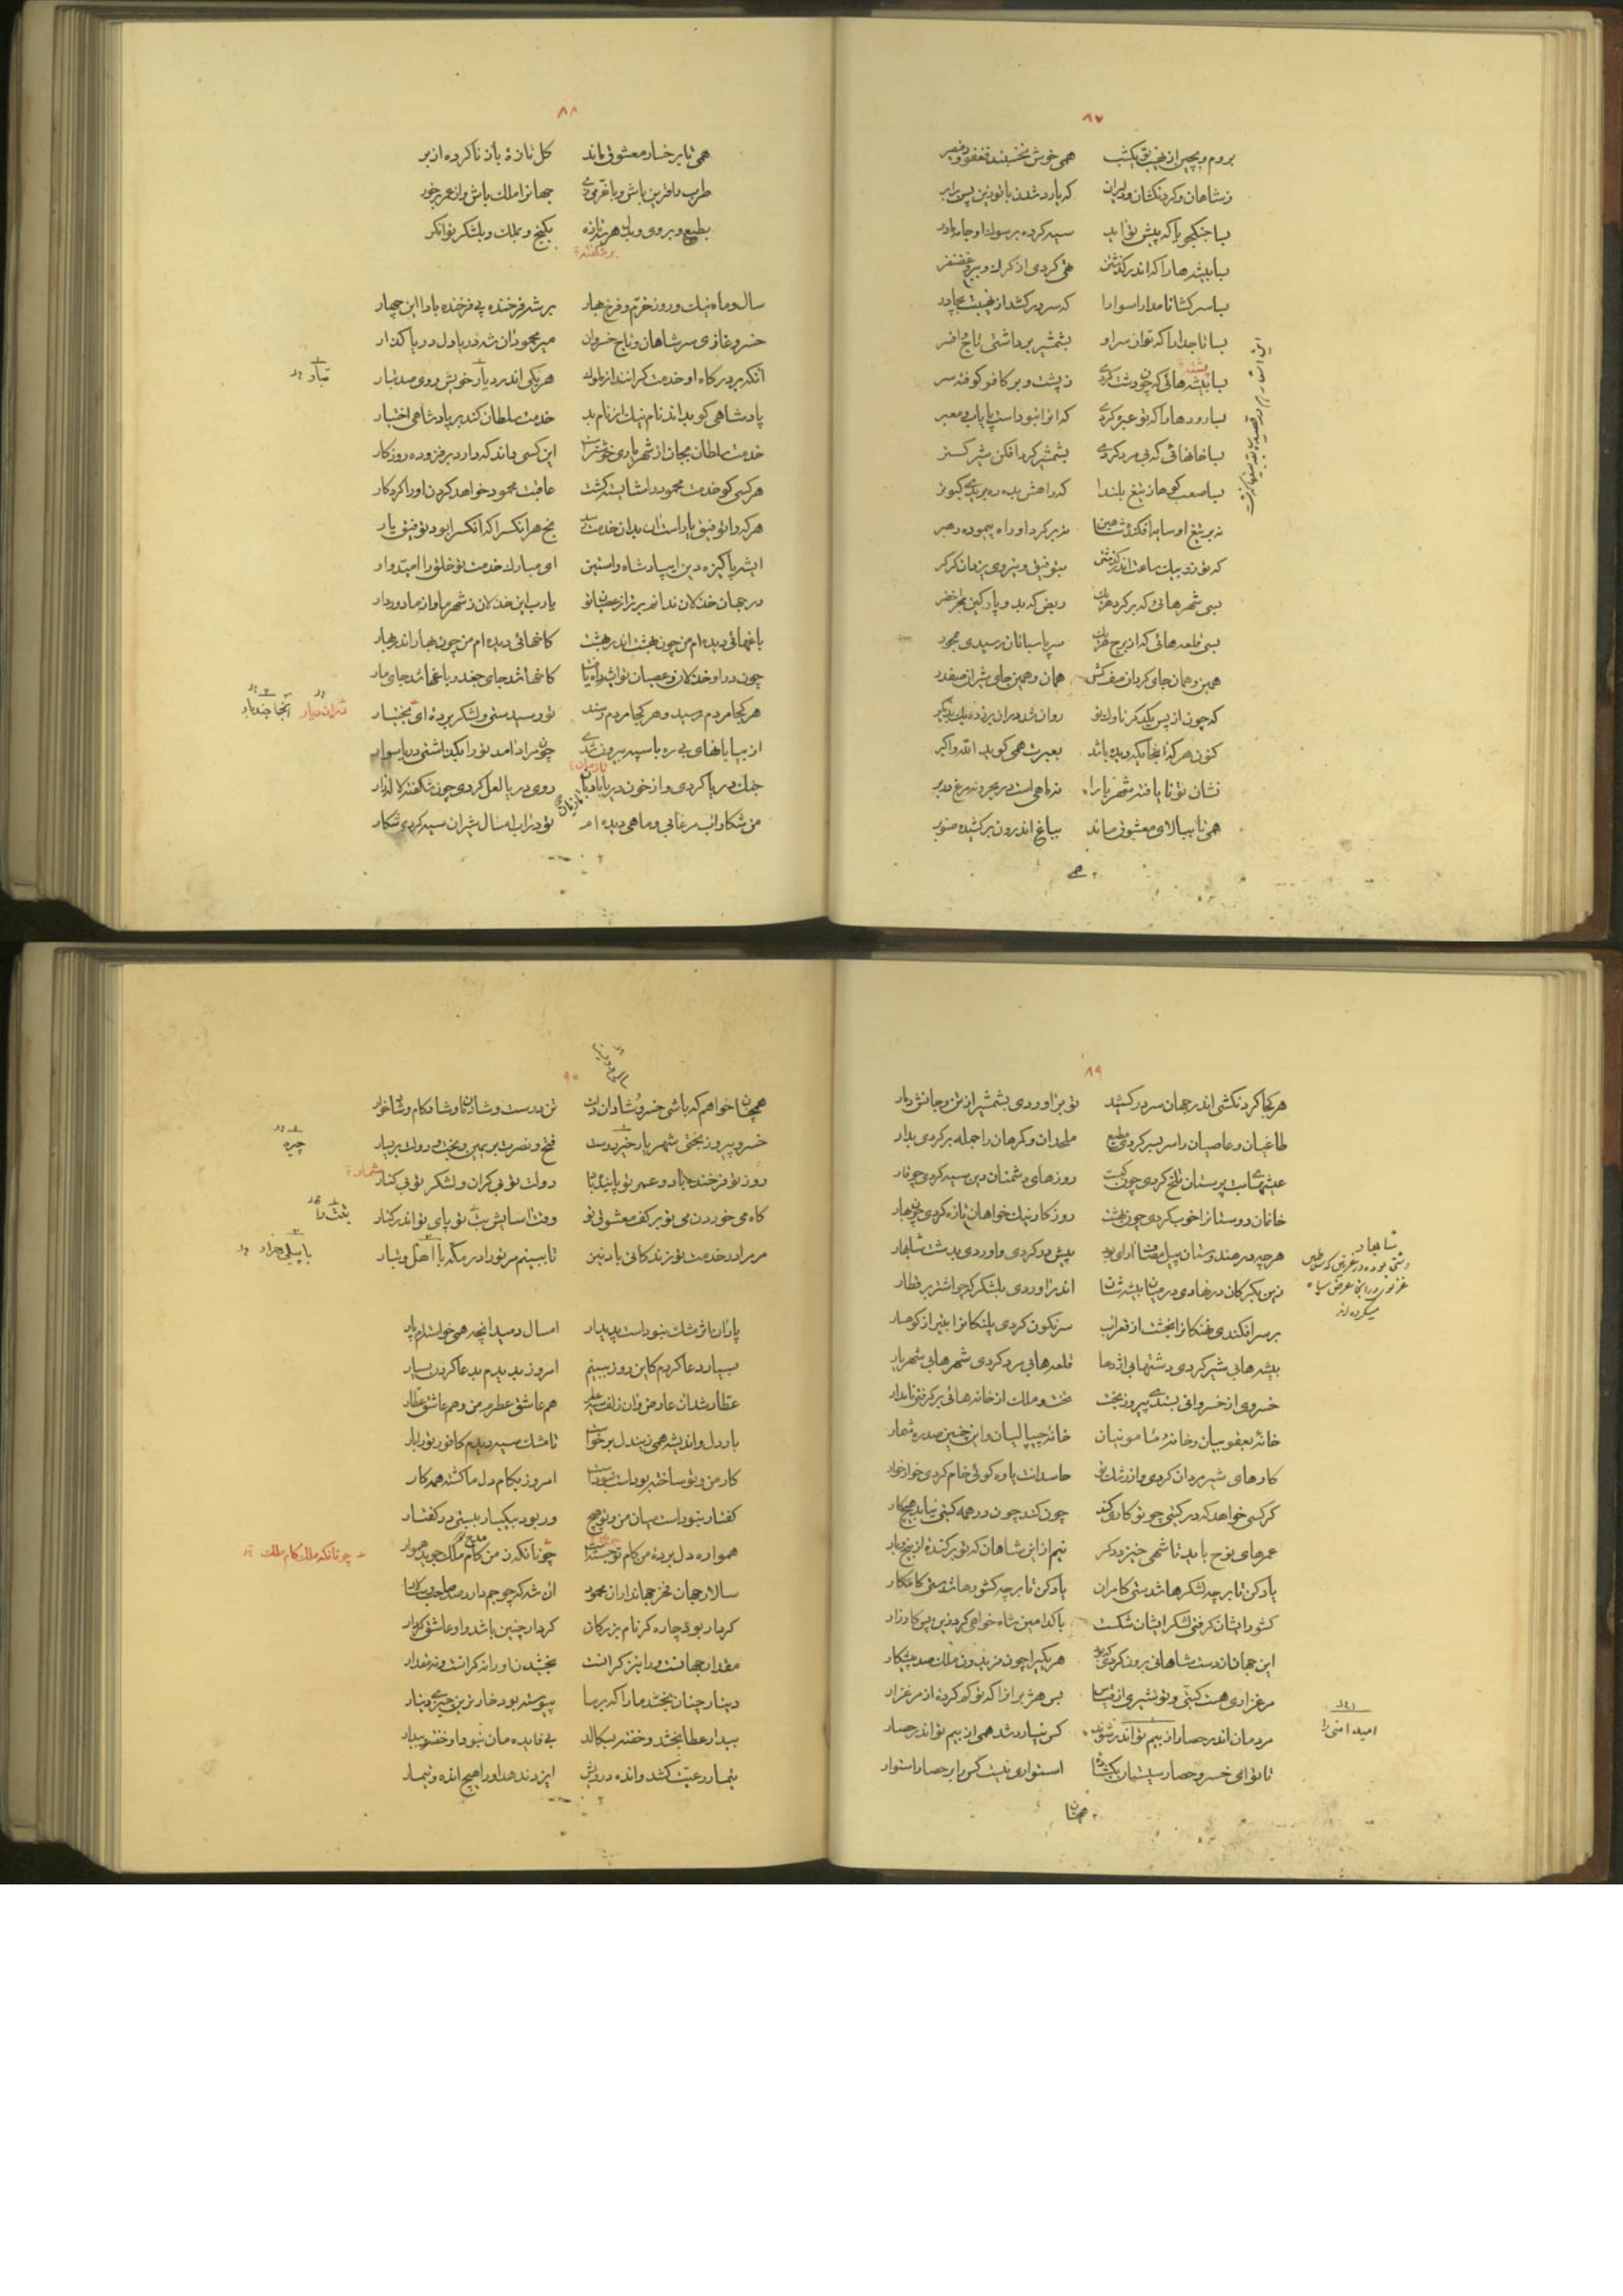 ٨٧
بروم و بچین از نهیب یکشب همی خوش نخسبند فغفور و قیصر
ز شاهان و گردنکشان و دلیران که یارد شدن با تو زین پس برابر
بسا جنگجویا که پیش تو آید سیه کرده بر سوک او جامه مادر
بسا بیشه هارا که اندر گذشتن تهی کردی از کرک و ببر و غضنفر
بسا سرکشا نامدارا سوارا که سر در کشد از نهیبت بچادر
بسا تاجدارا که تو از سر او بشمشیر برداشتی تاج و افسر
بسا بیشه هائی که چون دشت کردی ز پشت و بر کافر کوفته سر
بسا رودها را که تو عبره کردی که آنرا نبودست پایاب و معبر
بسا خانهائی که بی مرد کردی بشمشیر گرد افکن شیر گستر
بسا صعب کوها ز تیغ بلندا که راهش بده ره برید کبوتر
نه بر تیغ او سایه افکنده شاهین نه بر گرد او راه پیموده رهبر
که تو زو بیک ساعت اندر گذشتی بتوفیق و نیروی یزدان گرگر
بسی شهرهائی که بر گرد هر یک ربض که بد و پارگین بحر اخضر
بسی قلعه هائی که از برج هر یک سر پاسبانان رسیدی بمحور
همین و همان جای گردان صف کش همان و همین جای شیران صفدر
که چون از پس یکدگر ناوک تو روان شد در آن بر زده یک بدیگر
کنون هر که آنجایگه دیده باشد بعبرت همی گوید الله اکبر
نشان تو نایافته شهریارا نه ماهی است در بحر و نه مرغ در بر
همی تا ببالای معشوق ماند بباغ اندرون بر کشیده صنوبر
همی
٨٨
همی تا برخسار معشوق ماند گل تازهٔ باز ناکرده از بر
طرب را قرین باش و با فرمی جهانرا ملک باش و از عمر برخور
بطبع و بروی و بدل هر سه تازه بگنج و بملک و بلشکر توانگر
و شکفته؟
سال و ماه نیک و روز خرم و فرخ بهار بر شه فرخنده پی فرخنده بادا این چهار
خسرو غازی سر شاهان و تاج خسروان میر محمود آن شه دریا دل دریا گذار
آنکه بر درگاه او خدمت گرانند از ملوک هر یکی اندر دیار خویش روی صد تبار
تبار
پادشاهی کو بداند نام نیک از نام بد خدمت سلطان کند بر پادشاهی اختیار
خدمت سلطان بجان از شهریاری خوشترست این کسی داند که دارد بر فزوده روزگار
هر کسی کو خدمت محمود را شایسته گشت عاقبت محمود خواهد کردن او را کردگار
هر که را توفیق یارست آن بدان خدمت رسد بخ هر آنکس را که آنکس را بود توفیق یار
ای شه پاکیزه دین ای پادشاه راستین ای مبارک خدمت تو خلق را امیدوار
در جهان خذلان ندانم برتر از عصیان تو یارب این خذلان ز شهر ما و از ما دور دار
باغهائی دیده ام من چون بهشت اندر بهشت کاخهائی دیده ام من چون بهار اندر بهار
چون در او خذلان و عصیان تو ای شه راه یافت کاخها شد جای جغد و باغها شد جای مار
هر کجا مردم رسید و هر کجا مردم رسد تو رسیدستی و لشکر بردهٔ ای بختیار
از بیابانهای بی ره با سپه بیرون شدی چون مراد آمد تو را بگذاشتی دریا سوار
جنگ دریا کردی و از خون دریا بادیان روی دریا لعل کردی چون شکفته لاله زار
من شکار آب مرغابی و ماهی دیده ام تو در آب امسال شیران سیه کردی شکار
٨٩
هر کجا گردنکشی اندر جهان سر بر کشید تو بر آوردی بشمشیر از تن و جانش دمار
طاغیان و عاصیان را سر بسر کردی مطیع ملحدان و گمرهان را جمله بر کردی بدار
عیشهای بت پرستان تلخ کردی چون کبست روزهای دشمنان دین سیه کردی چو قار
خانمان دوستانرا خوب کردی چون بهشت روزگار نیک خواهان تازه کردی چون بهار
هر چه در هندوستان پیل مصاف آرای بود پیش خود کردی و آوردی بدشت شابهار
شابهار
دشتی بوده در غزنین که سلاطین
غزنوی در آنجا عرض سپاه
میکرده اند
زین یکی کان در نهادی در میان بیشه شان اندر آوردی بلشکر گه چو اشتر بر قطار
بر سر افکندی نهنگانرا بخشت از قعر آب سرنگون کردی پلنگانرا بتیر از کوهسار
بیشه ها بی شیر کردی دشتها بی اژدها قلعه ها بی مرد کردی شهرها بی شهریار
خسروی از خسروانی بستدی پیروز بخت تخت و ملک از خانه هائی بر گرفتی نامدار
خانهٔ یعقوبیان و خانهٔ مامونیان خانهٔ جیپالیان و این چنین صد بر شمار
کارهای شیر مردان کردی و از رشک تو حاسدانت یاوه گوئی خام کردی خوار خوار
گر کسی خواهد که در گیتی چو تو کاری کند چون کند چون در همه گیتی نیابد هیچ کار
عمرهای نوح باید تا شهی خیزد دگر نیم از این شاهان که تو بر کندهٔ از بیخ و بار
یاد کن تا بر چه لشکرها شدستی کامران یاد کن تا بر چه کشورها شدستی کامکار
کشور ایشان گرفتی لشکر ایشان شکست با کدامین شاه خواهی کرد زین پس کارزار
این جهان از دست شاهانی برون کردی که بود هر یکیرا چون فریدون ملک صد پیشکار
مرغزاری هست گیتی و تو شیری از قیاس بس هژبر انرا که تو کم کردهٔ از مرغزار
مردمان اندر حصار از بیم تو اندر شوند کس نیارد شد همی از بیم تو اندر حصار
امید امنی را
تا تو ای خسرو حصار سیستان بگشادهٔ استواری نیست کس را بر حصار استوار
همچنان
٩٠
همچنان خواهم که باشی خسرو شادان دلت تن درست و شادمان و شادکام و شادخوار
خسرو پیروز بختی شهریار خیره دست فتح و نصرت بر یمین و بخت و دولت بر یسار
چیره
روز تو فرخنده باد و عمر تو پاینده باد دولت تو بی کران و لشکر تو بی کنار
شمار؟
گاه می خوردن می تو بر کف معشوق تو وقت آسایش بت تو پای تو اندر کنار
مر مرا در خدمت تو زندگانی باد نیز تا ببینم مر تو را در مکه با اهل و تبار
یاران اثر مشک نبودست پدیدار امسال دمید آنچه همی خواستم از یار
بسیار دعا کردم کاین روز ببینم امروز بدیدم بدعا کردن بسیار
عطار شد آن عارض و آن زلف عطر هم عاشق عطرم من و هم عاشق عطار
بار دل و اندیشه همی زین دل برخاست تا مشک سیه دیدم کافور تو را بار
کار من و تو ساخته بودست نبودست امروز بکام دل ما گشته همه کار
گفتار نبودست میان من و تو هیچ ور بود بیکبار ببستی در گفتار
همواره دل بردهٔ من کام تو جستست چونانکه تن من کام ملک جوید هموار
چونانکه ملک کام ملک
سالار جهان فخر جهانداران محمود آن شه که چو جم دارد صد حاجب و سالار
کردار بود چاره گر نام بزرگان کردار چنین باشد و او عاشق کردار
مقدار جهانست و را نیز کرانست بخشیدن او را نه کرانست و نه مقدار
دینار چنان بخشد ما را که بر ما پیوسته بود خوارترین چیزی دینار
بیدار عطا بخشد و خفته بسگالد بی فایده مان نبود او خفته و بیدار
تیمار رعیت کشد و انده درویش ایزد ندهد او را هیچ انده و تیمار